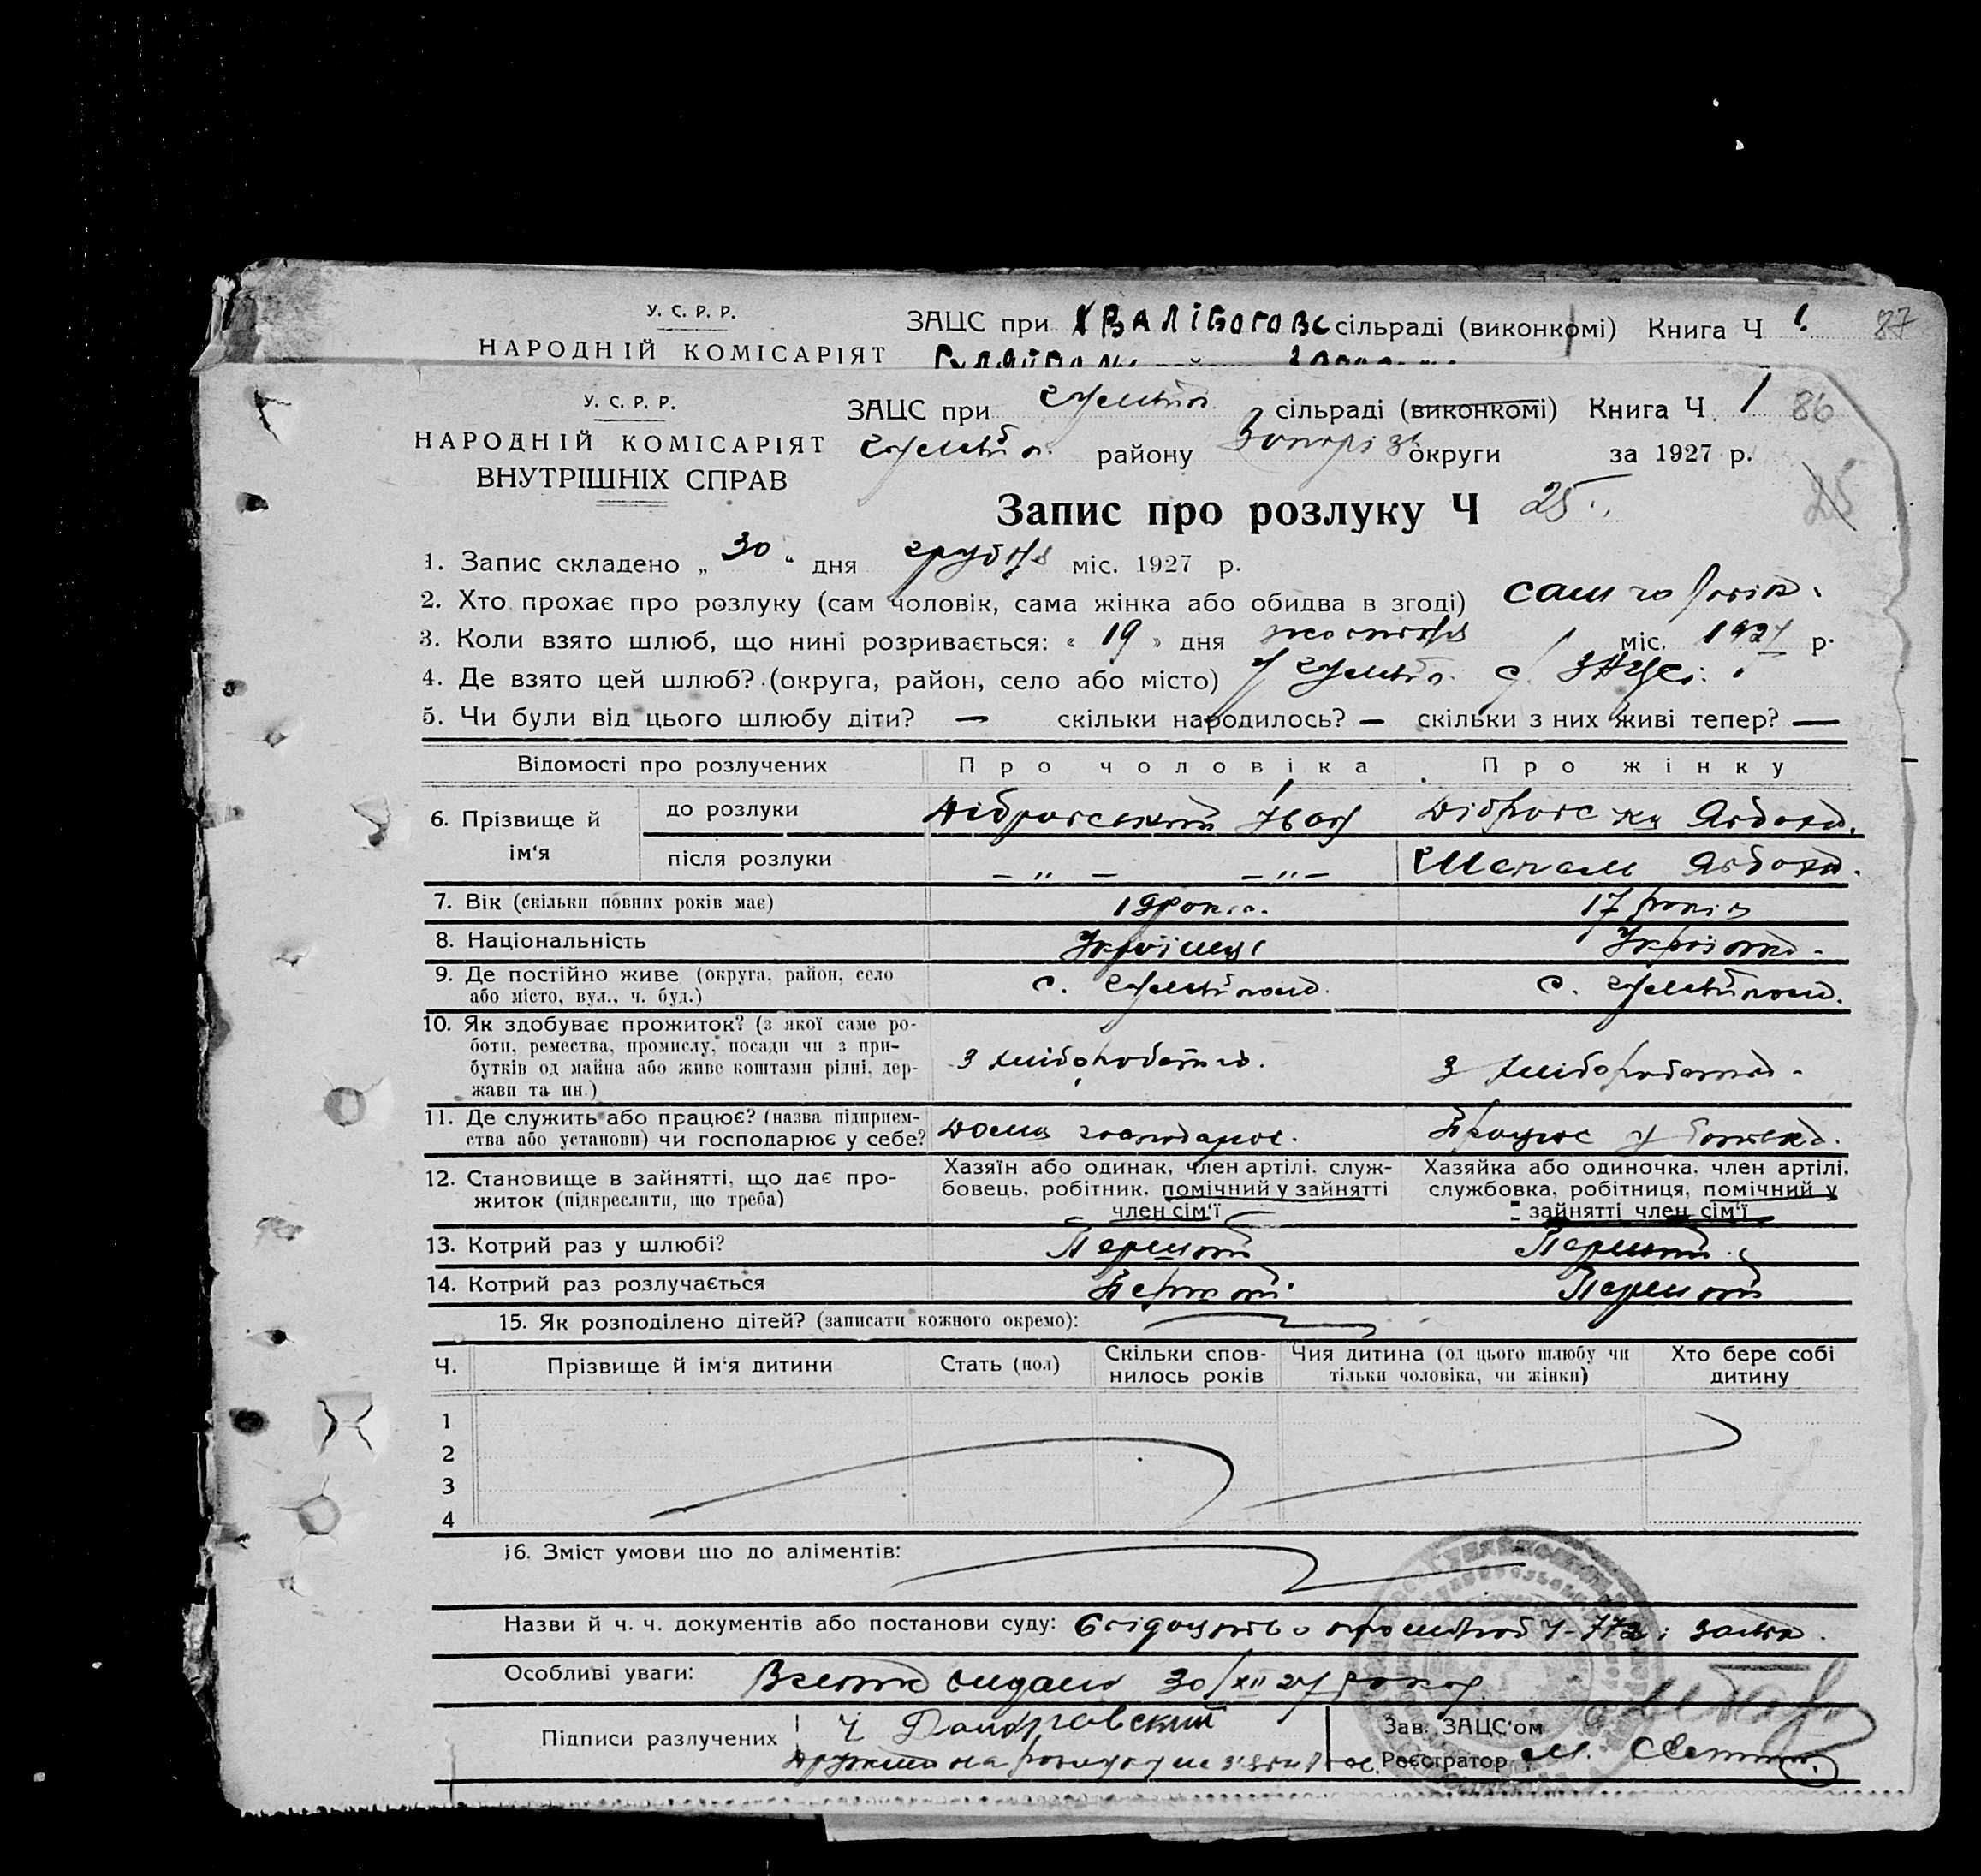 У. С. Р. Р.
НАРОДНІЙ КОМІСАРІЯТ
ЗАЦС при ХВАЛІБОГОВС сільраді (виконкомі) Книга Ч 1. 87
У. С. Р. Р.
НАРОДНІЙ КОМІСАРІЯТ
ВНУТРІШНІХ СПРАВ
ЗАЦС при сільраді (виконкомі) Книга Ч. 1 86
району Запоріз округи за 1927 р.
Запис про розлуку Ч 25
25
1. Запис складено „ 30 “ дня грудня міс. 1927 р.
2. Хто прохає про розлуку (сам чоловік, сама жінка або обидва в згоді) сам чоловік.
3. Коли взято шлюб, що нині розривається: « 19 » дня жовтня міс. 1927 р.
4. Де взято цей шлюб? (округа, район, село або місто) У с. ЗАЦСі.
5. Чи були від цього шлюбу діти? — скільки народилось? — скільки з них живі тепер? —
Відомості про розлучених Про чоловіка Про жінку
6. Прізвище й ім'я
до розлуки Дібровський Іван Дібровська Явдоха.
після розлуки — „ — — „ — Явдоха.
7. Вік (скільки повних років має) 19 років. 17 років
8. Національність Українець Українка.
9. Де постійно живе (округа, район, село або місто, вул., ч. буд.) с. с.
10. Як здобуває прожиток? (з якої саме роботи, ремества, промислу, посади чи з прибутків од майна або живе коштами рідні, держави та ин.) З хліборобства. З хліборобства.
11. Де служить або працює? (назва підприємства або установи) чи господарює у себе? Дома господарює. Працює у батька.
12. Становище в зайнятті, що дає прожиток (підкреслити, що треба)
Хазяїн або одинак, член артілі, службовець, робітник, помічний у зайнятті член сім'ї
Хазяйка або одиночка, член артілі, службовка, робітниця, помічний у зайнятті член сім'ї
13. Котрий раз у шлюбі? Перший Перший.
14. Котрий раз розлучається Перший. Перший
15. Як розподілено дітей? (записати кожного окремо):
Ч. Прізвище й ім'я дитини Стать (пол) Скільки сповнилось років Чия дитина (од цього шлюбу чи тільки чоловіка, чи жінки) Хто бере собі дитину
1
2
3
4
16. Зміст умови що до аліментів:
Назви й ч. ч. документів або постанови суду: о шлюб Ч- і заява.
Особливі уваги: видано 30/XII 27 року.
Підписи разлучених
Дружина на розлуку не
Зав. ЗАЦС'ом
Реєстратор М.